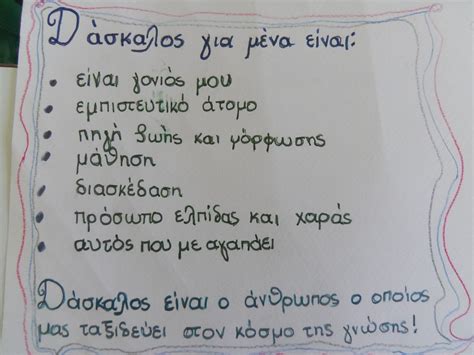 Δάσκαλος για μένα είναι:
• είναι γονιός μου
• εμπιστευτικό άτομο
• πηγή ζωής και μόρφωσης
• μάθηση
• διασκέδαση
• πρόσωπο ελπίδας και χαράς
• αυτός που με αγαπάει
Δάσκαλος είναι ο άνθρωπος ο οποίος
μας ταξιδεύει στον κόσμο της γνώσης!